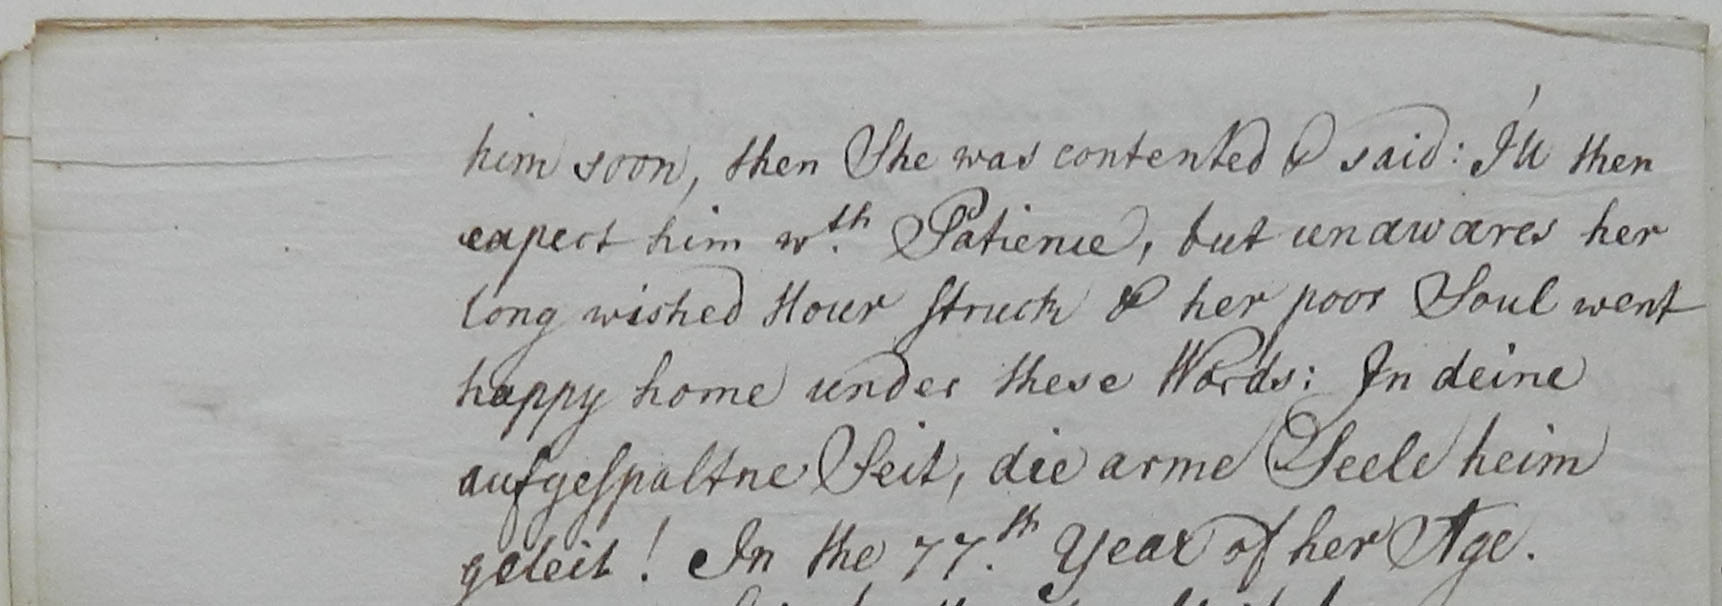 him soon, then She was contented & said: I'll then
expect him wth. Patience, but unawares her
long wished Hour struck & her poor Soul went
happy home under these Words: In deine
aufgespaltne Seit, die arme Seele heim
geleit! In the 77.th Year of her Age.